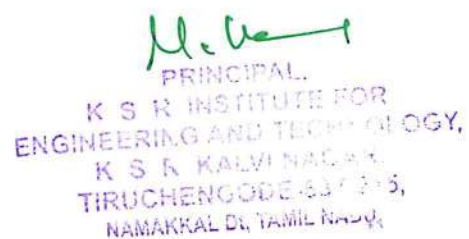 PRINCIPAL,
K S R INSTITUTE FOR
ENGINEERING AND TECHNOLOGY,
K S R KALVI NAGAR,
TIRUCHENGODE
NAMAKKAL Dt, TAMIL NADU.